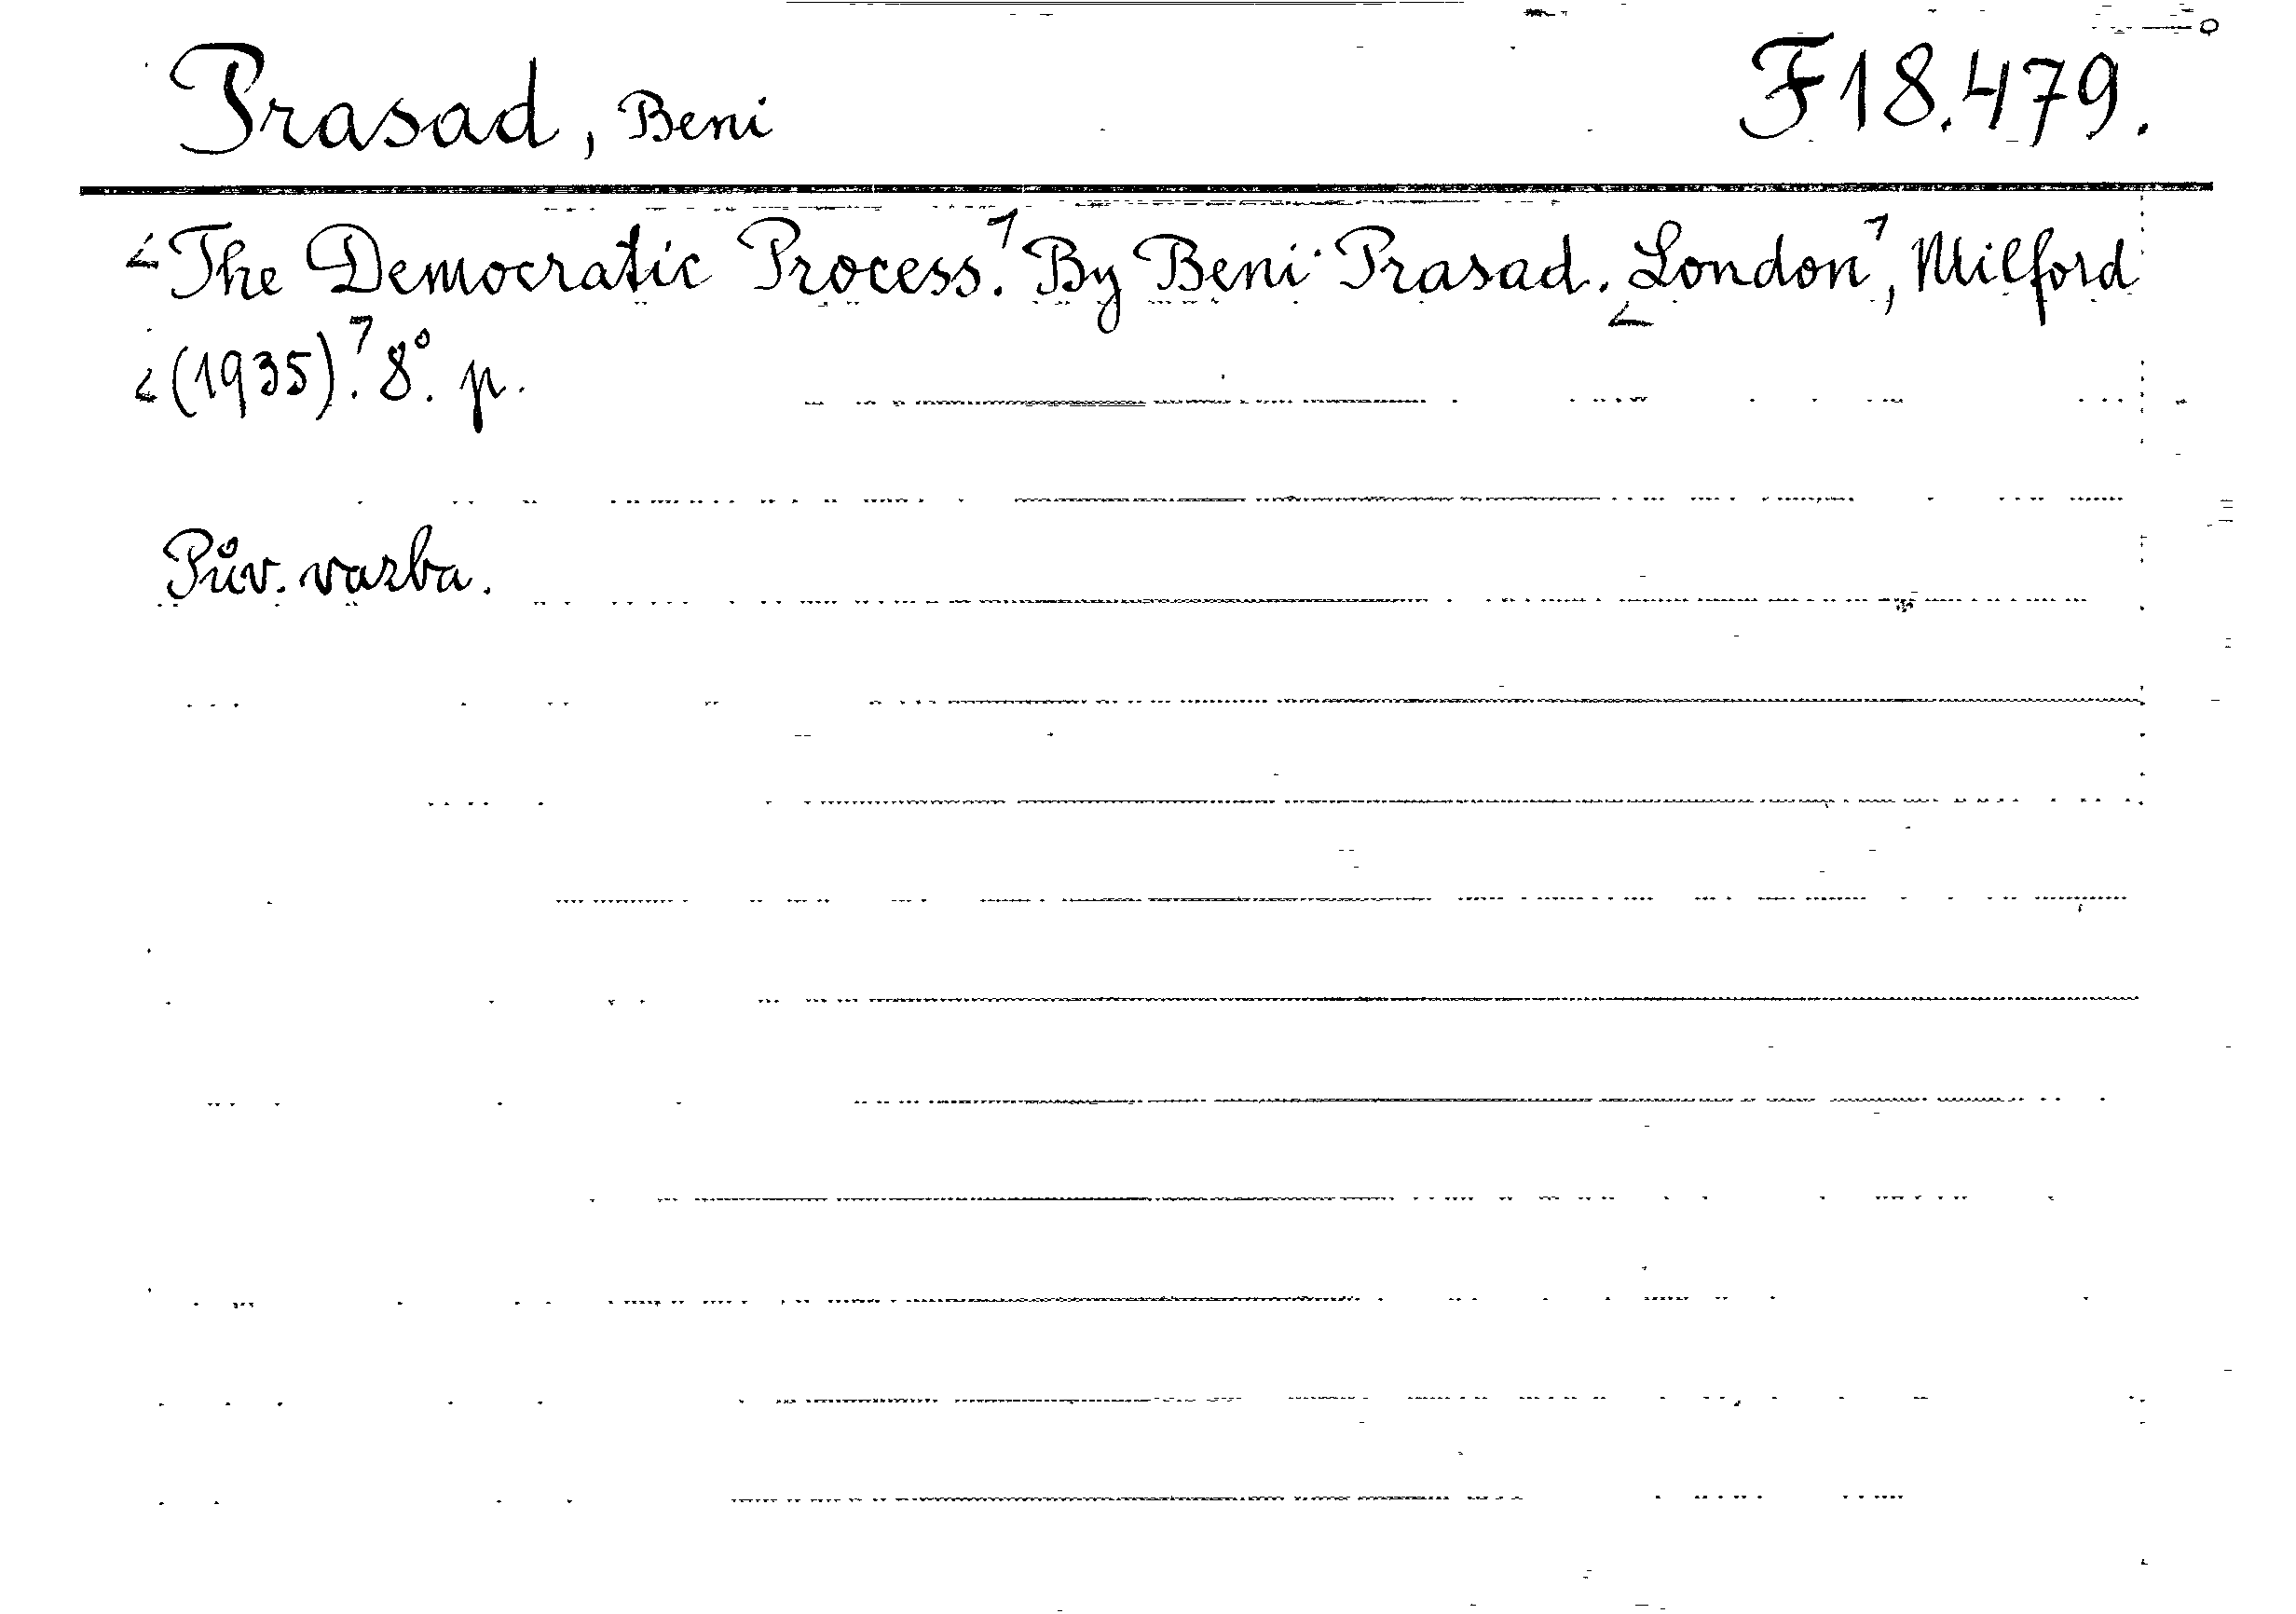 Prasad, Beni F 18.479.
The Democratic Process. By Beni Prasad. London, Milford
(1935). 8°. p.
Pův. vazba.